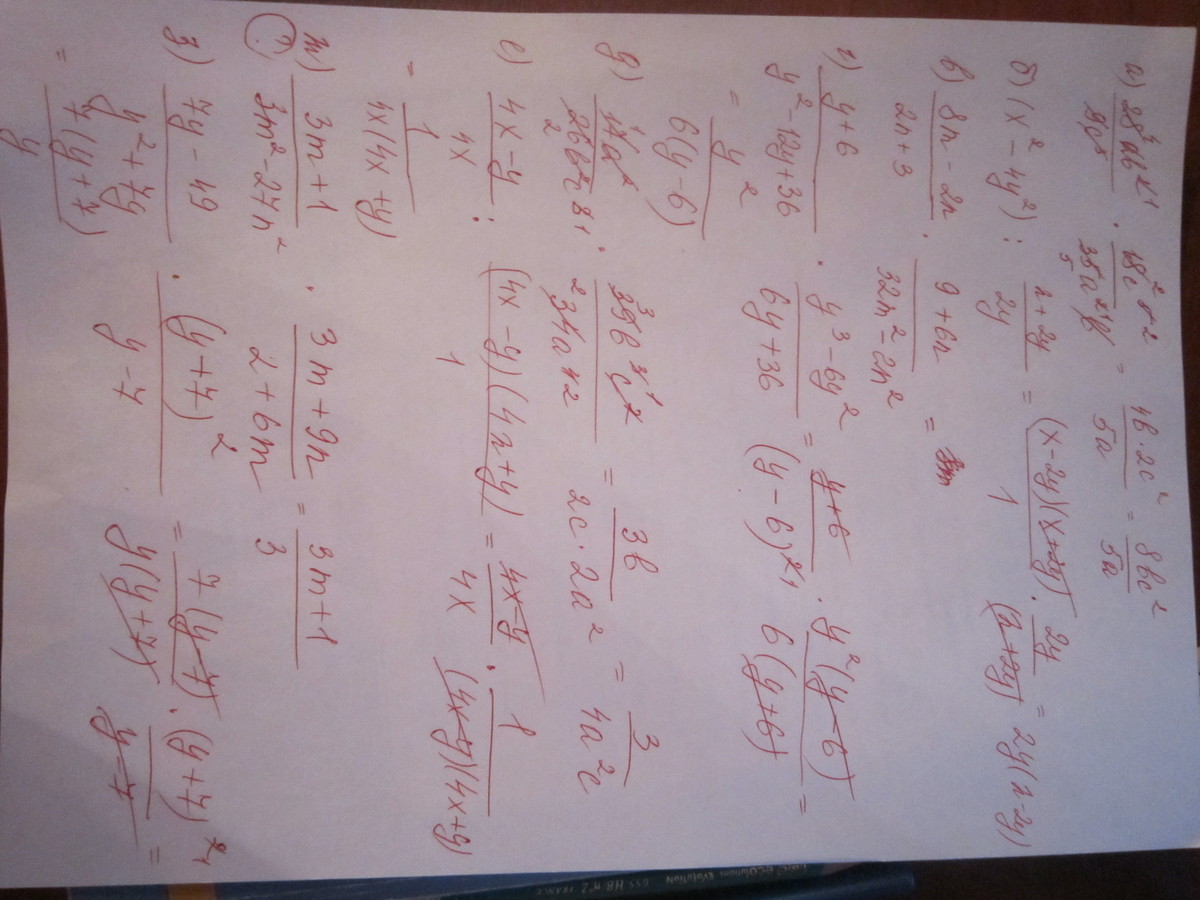 а) 28³ab²¹/9c⁵ · 18²c²/35a²b = 4b·2c²/5a = 8bc²/5a
б) (x²-4y²) : x+2y/2y = (x-2y)(x+2y)/1 · 2y/(x+2y) = 2y(x-2y)
в) 8m-2n/2n+3 · 9+6n/32m²-2n² =
г) y+6/y²-12y+36 · y³-6y²/6y+36 = y+6/(y-6)²¹ · y²(y-6)/6(y+6) =
= y²/6(y-6)
е) 4x-y/4x : (4x-y)(4x+y)/1 = 4x-y/4x · 1/(4x-y)(4x+y)
= 1/4x(4x+y)
ж) 3m+1/3m²-27n² · 3m+9n/2+6m = 3m+1/3
з) 7y-49/y²+7y · (y+7)²/y-7 = 7(y-7)/y(y+7) · (y+7)²¹/y-7 =
= 7(y+7)/y